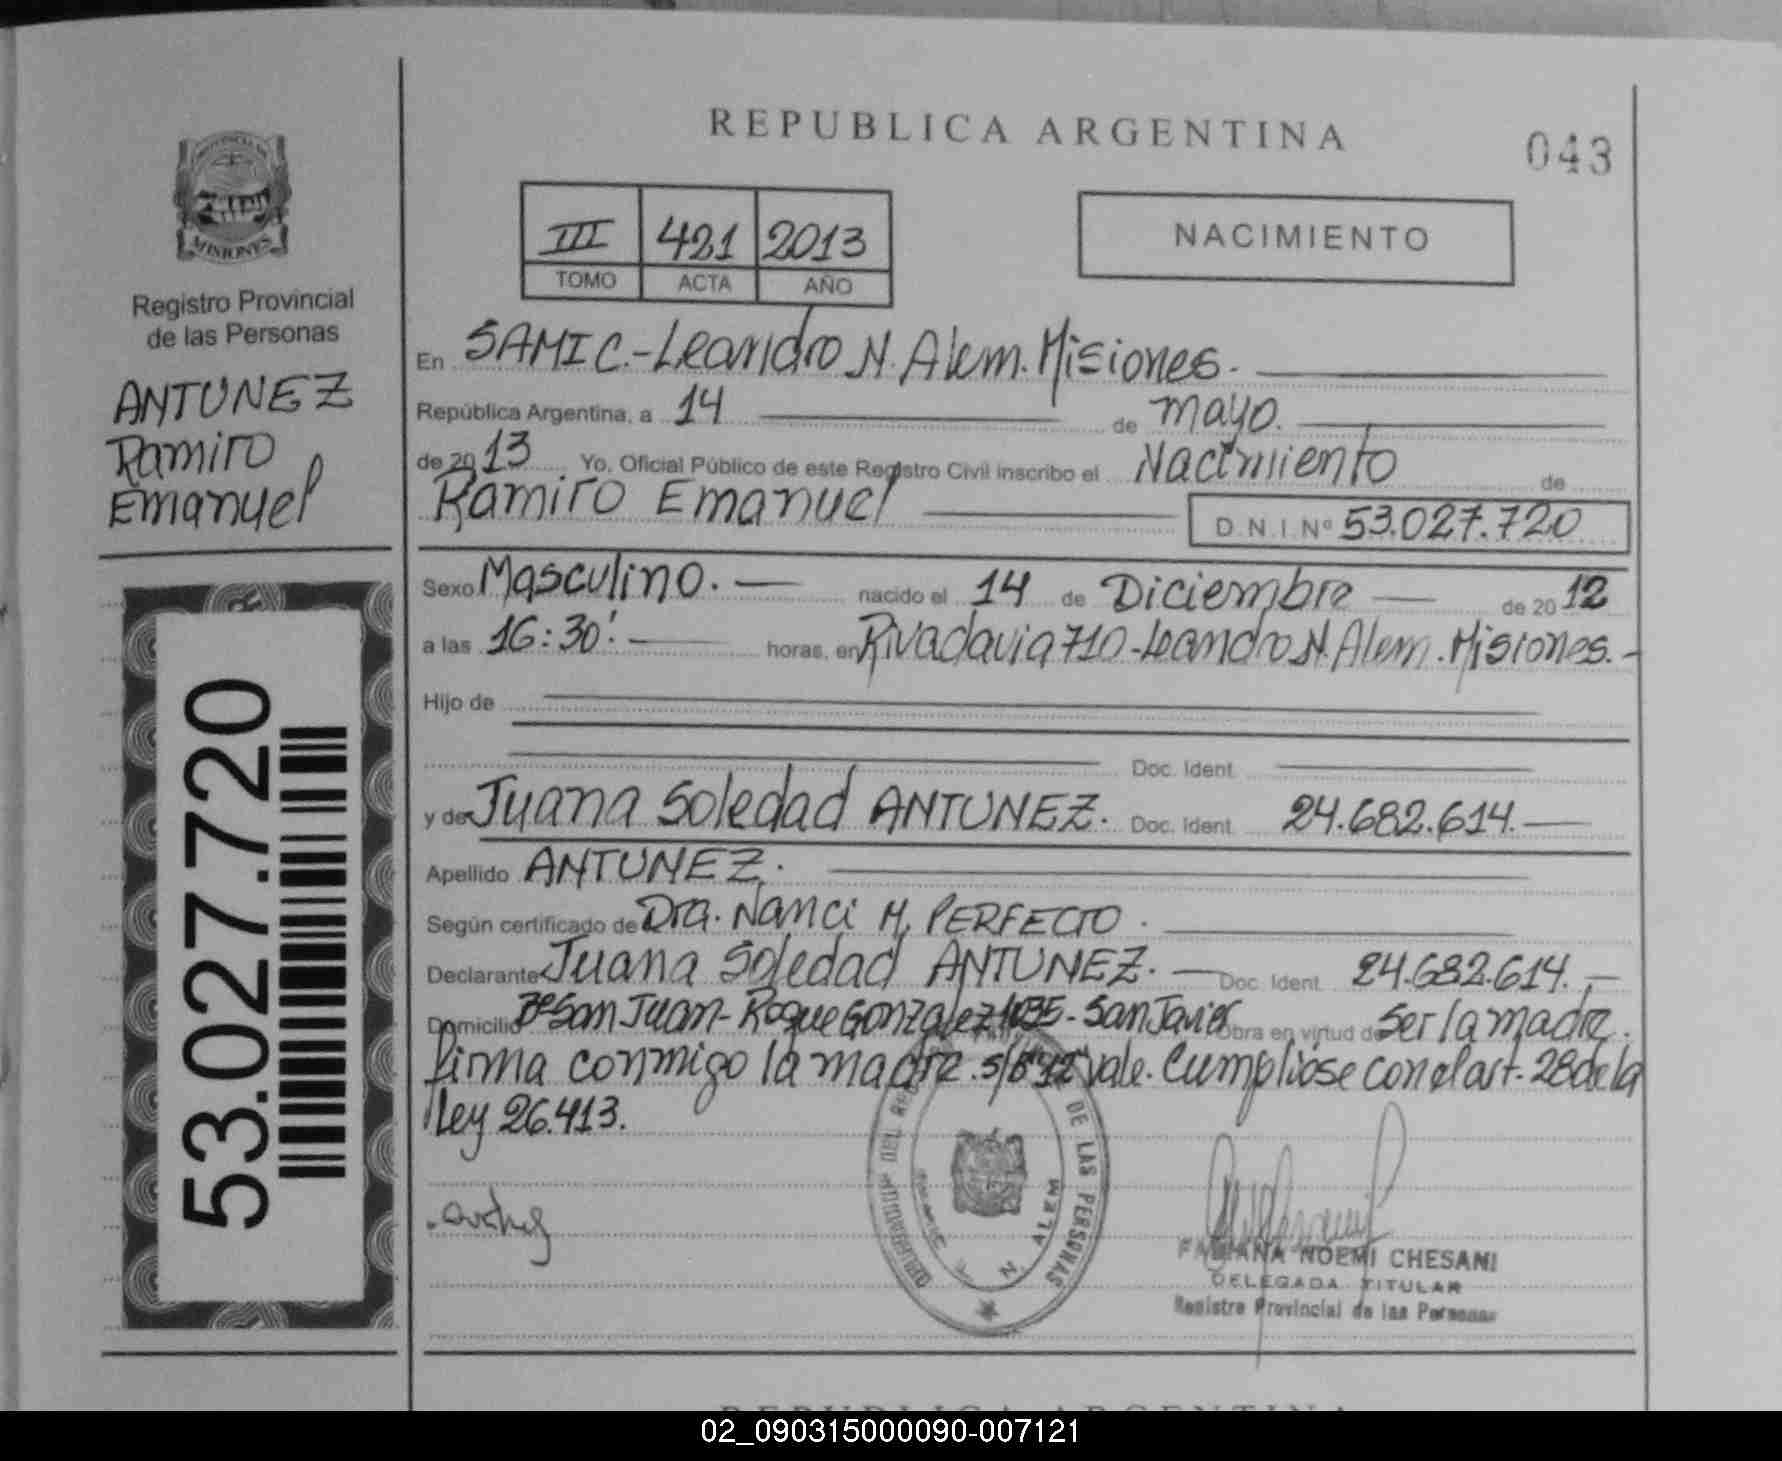 REPUBLICA ARGENTINA
043
MISIONES
Registro Provincial
de las Personas
ANTUNEZ
Ramiro
Emanuel
53.027.720
III 421 2013
TOMO ACTA AÑO
NACIMIENTO
En SAMIC.-Leandro N. Alem. Misiones.
República Argentina, a 14 de mayo.
de 2013 Yo, Oficial Público de este Registro Civil inscribo el Nacimiento de
Ramiro Emanuel D.N.I.Nº 53.027.720
Sexo Masculino. nacido el 14 de Diciembre de 2012
a las 16:30'. horas, en Rivadavia 710-Leandro N. Alem. Misiones.-
Hijo de
Doc. Ident.
y de Juana Soledad ANTUNEZ. Doc. Ident. 24.682.614.
Apellido ANTUNEZ.
Según certificado de Dra. Nanci M. PERFECTO.
Declarante Juana Soledad ANTUNEZ. Doc. Ident. 24.682.614.
Domicilio Bº San Juan-Roque Gonzalez 1035-San Javier Obra en virtud de Ser la madre.
firma conmigo la madre. s/b "12" vale. Cumpliose con el art. 28 de la
Ley 26.413.
DE LAS PERSONAS
N. ALEM
FABIANA NOEMI CHESANI
DELEGADA TITULAR
Registro Provincial de las Personas
REPUBLICA ARGENTINA
02_090315000090-007121